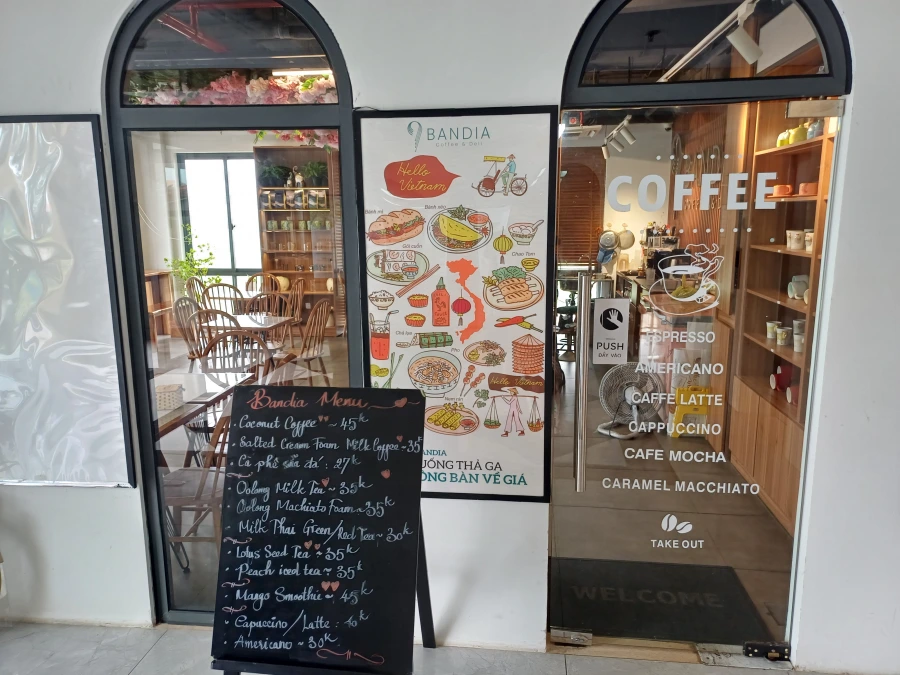 BANDIA
Coffee & Deli
Hello
Vietnam
Bánh mì
Bánh xèo
Gỏi cuốn
Chạo Tôm
Phở
Hello Vietnam
BANDIA
UỐNG THẢ GA
ÔNG BÀN VỀ GIÁ
Bandia Menu
Coconut Coffee ~ 45k
Salted Cream Foam Milk Coffee ~ 35
Cà phê sữa đá : 27k
Oolong Milk Tea ~ 35k
Oolong Machiato Foam ~ 35k
Milk Thai Green/Red Tea ~ 30k
Lotus Seed Tea ~ 35k
Peach iced tea ~ 35k
Mango Smoothie ~ 45k
Capuccino/Latte : 40k
Americano ~ 30k
COFFEE
PUSH
ĐẨY VÀO
ESPRESSO
AMERICANO
CAFFÈ LATTE
CAPPUCCINO
CAFE MOCHA
CARAMEL MACCHIATO
TAKE OUT
WELCOME